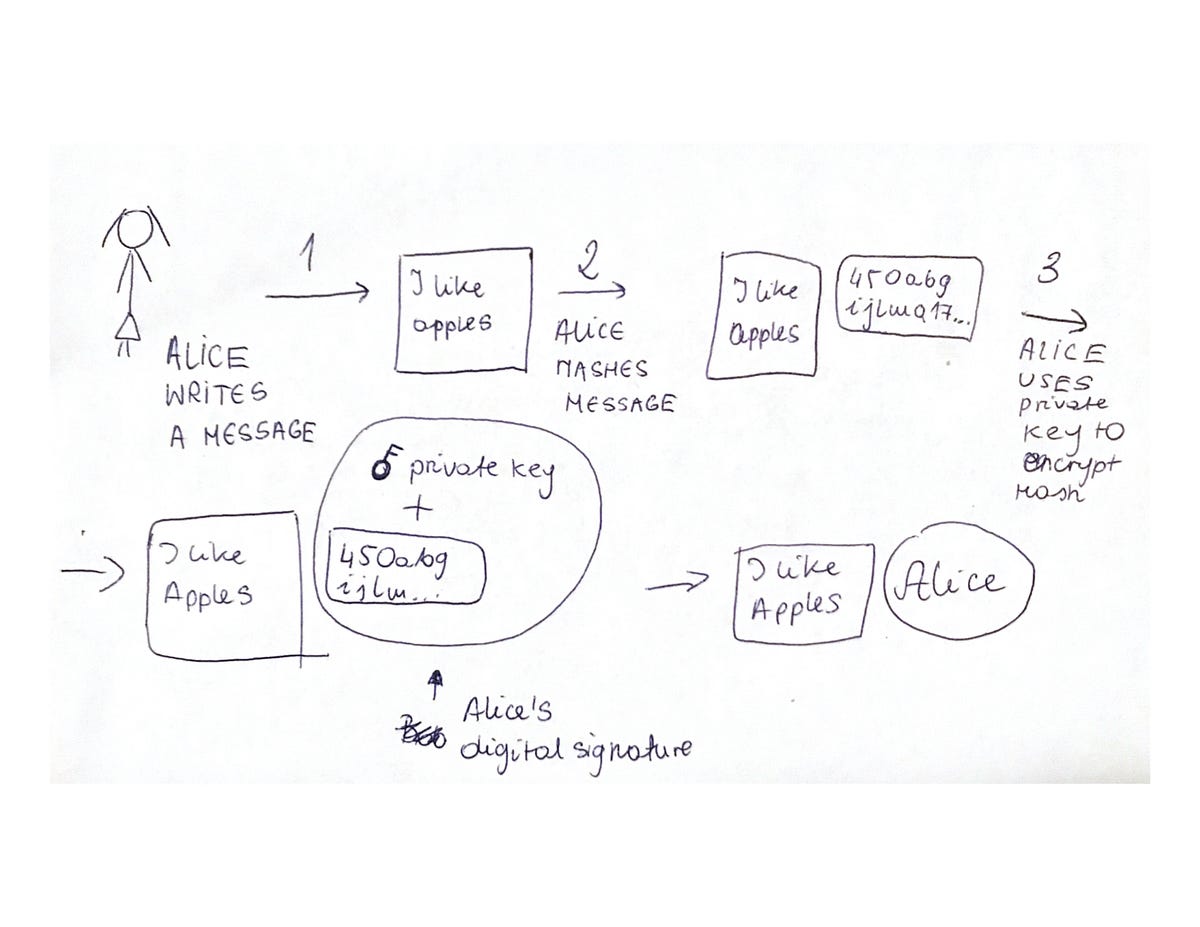 1
ALICE
WRITES
A MESSAGE
I like
apples
2
ALICE
HASHES
MESSAGE
I like
apples
450abg
ijlmq17...
3
ALICE
USES
private
key to
encrypt
Hash
I like
Apples
private key
+
450abg
ijlm...
Alice's
digital signature
I like
Apples
Alice